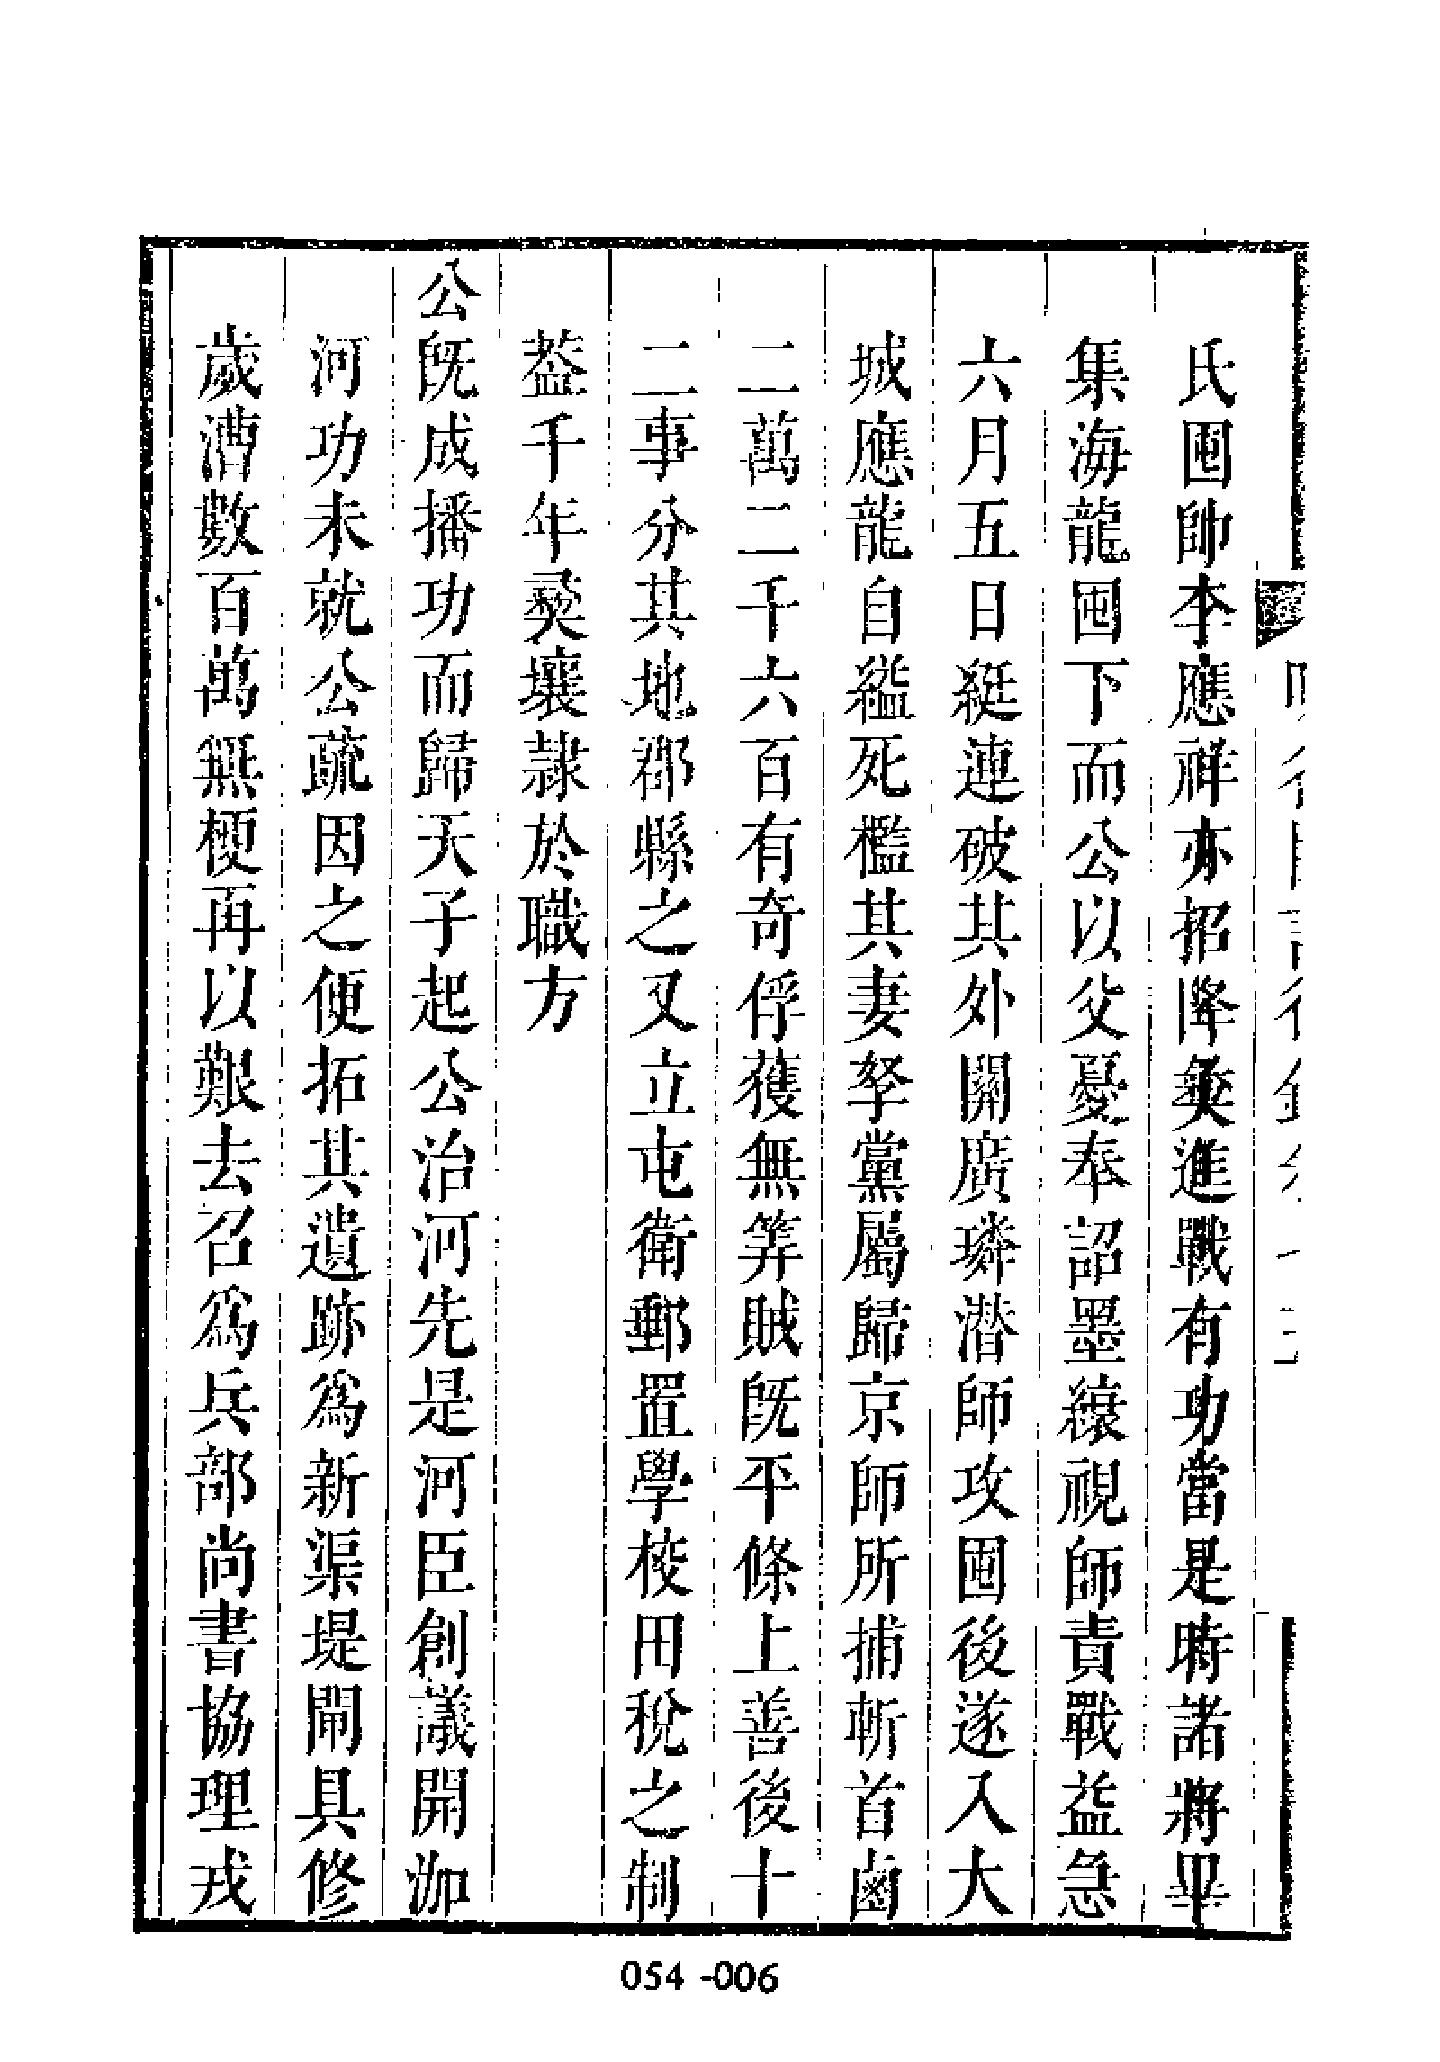 氏囤帥李應祥亦招降彝進戰有功當是時諸將畢
集海龍囤下而公以父憂奉詔墨縗視師責戰益急
六月五日綎連破其外關廣璘潛師攻囤後遂入大
城應龍自縊死檻其妻孥黨屬歸京師所捕斬首鹵
二萬二千六百有奇俘獲無筭賊旣平條上善後十
二事分其地郡縣之又立屯衛郵置學校田稅之制
葢千年彝壤隷於職方
公旣成播功而歸天子起公治河先是河臣創議開泇
河功未就公疏因之便拓其遺跡爲新渠堤閘具修
歲漕數百萬無梗再以艱去召爲兵部尚書協理戎
054-006